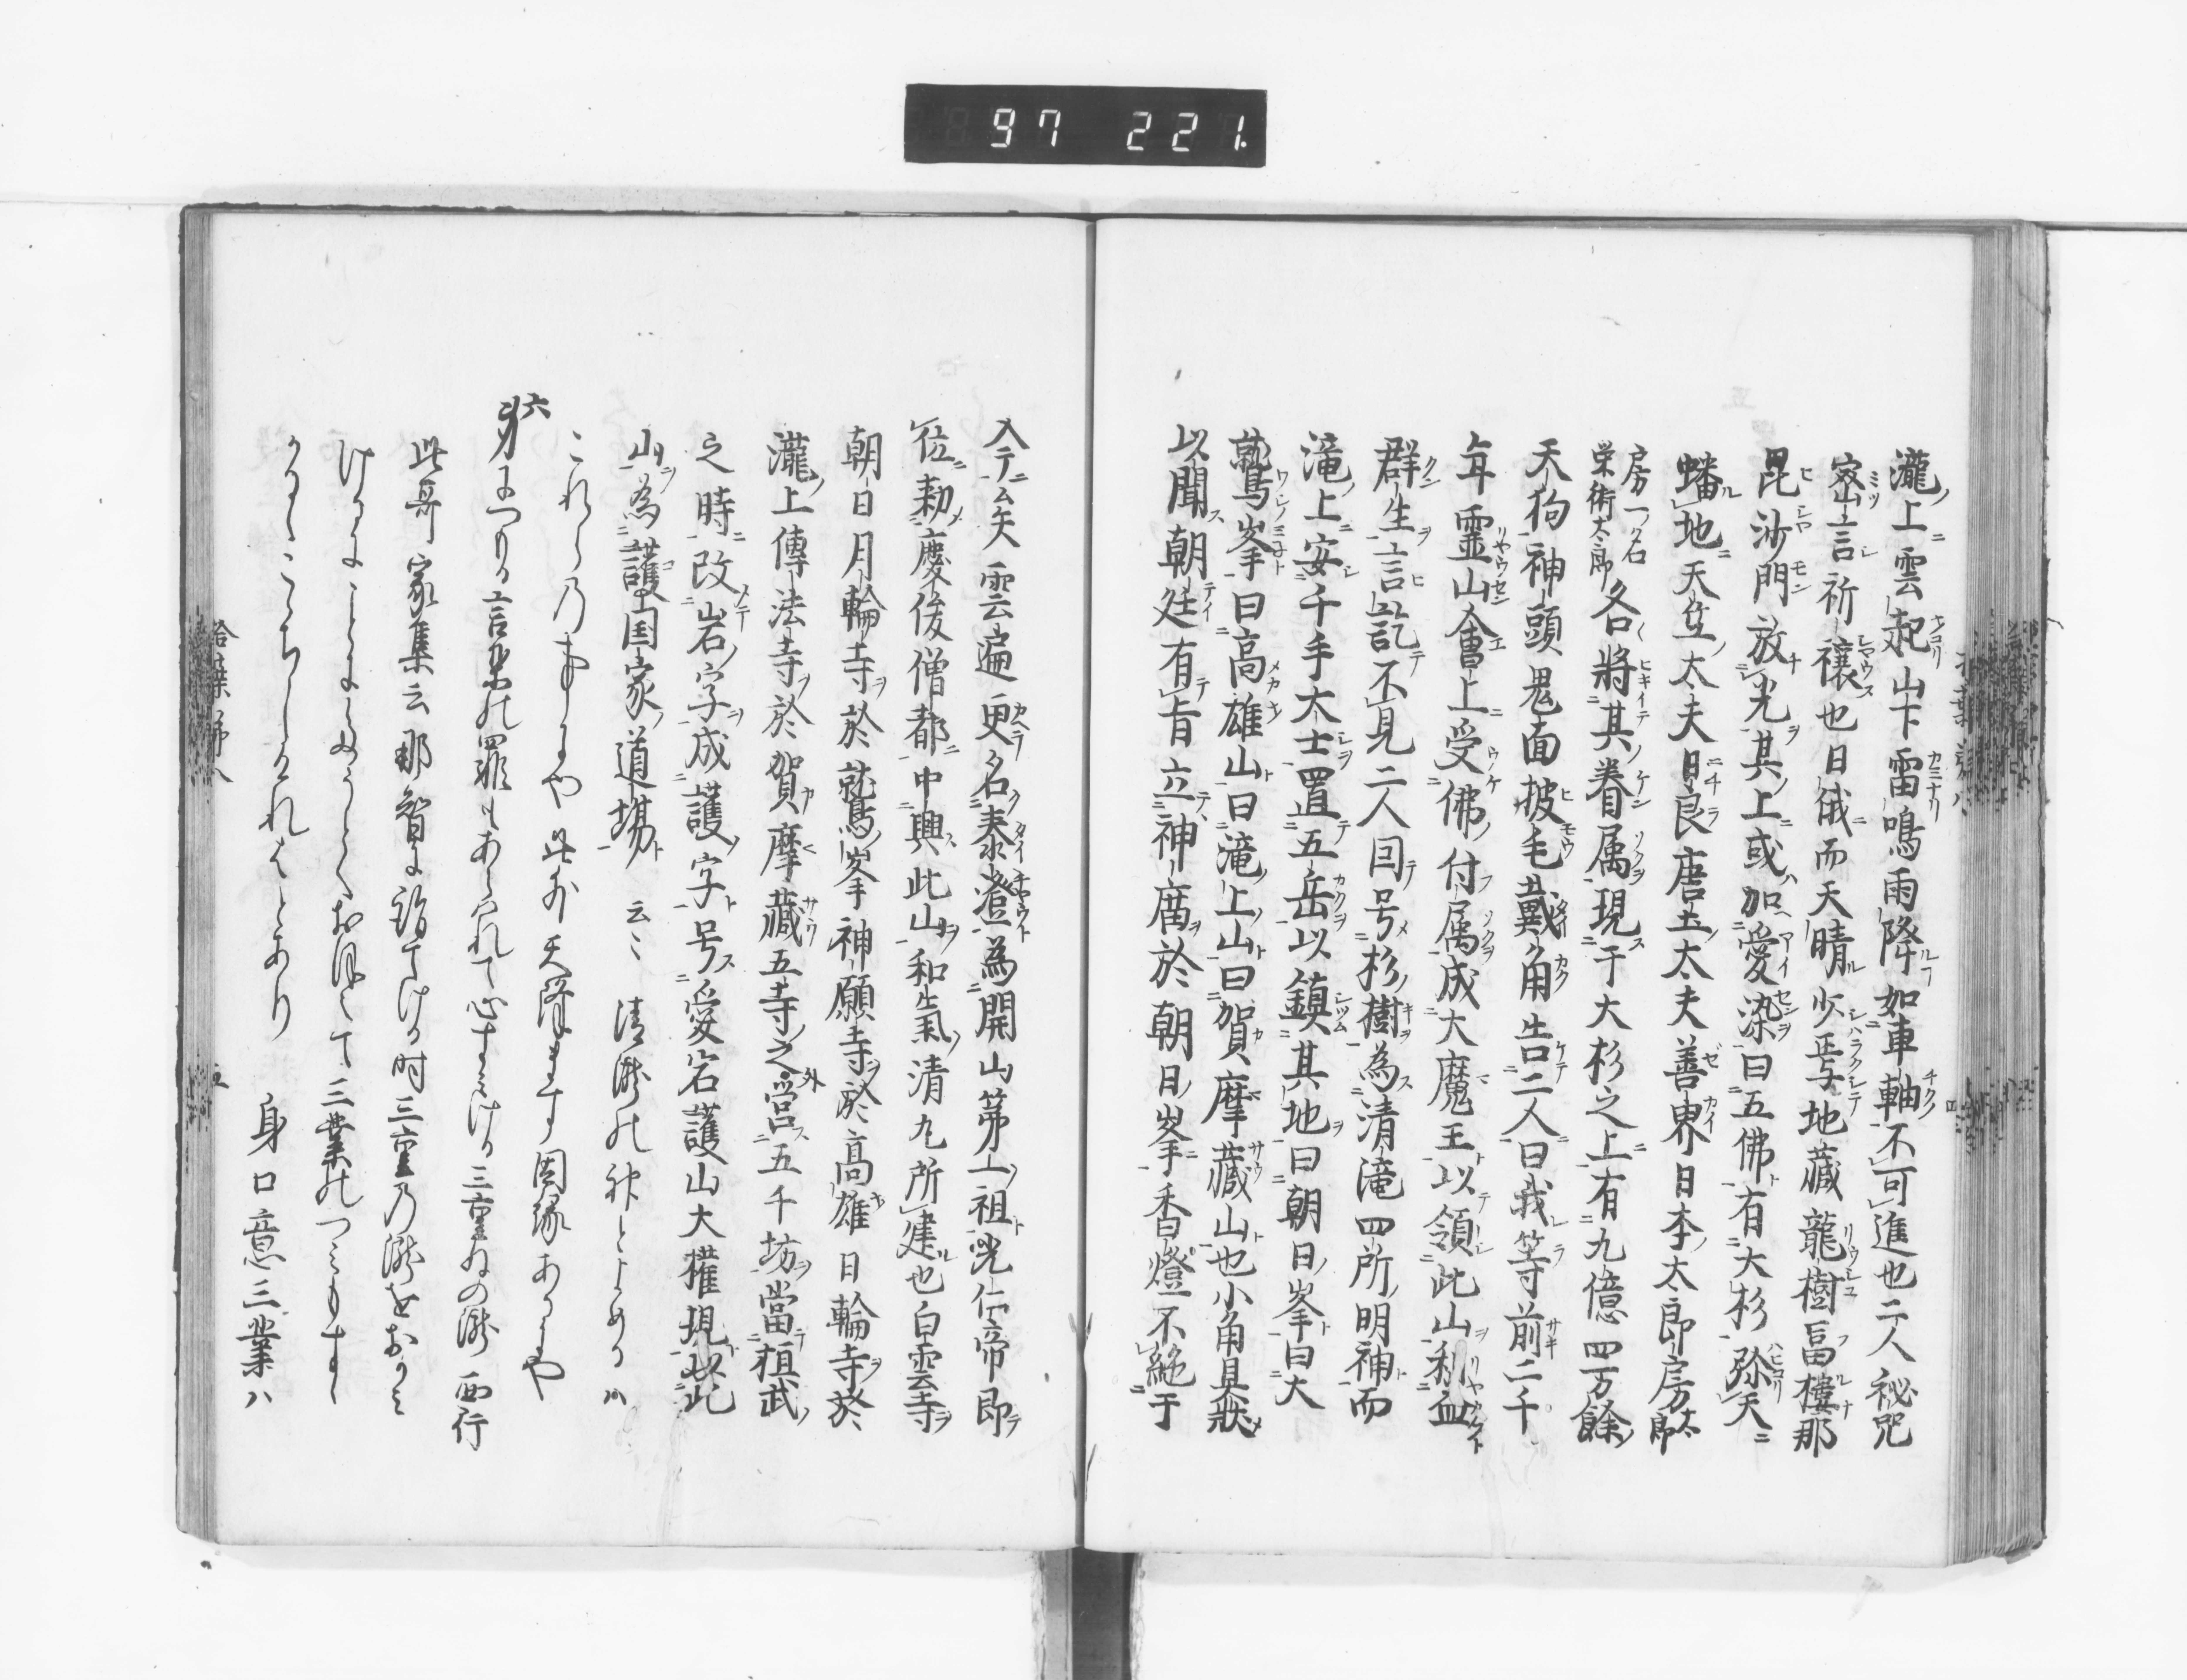 97 221.
瀧上雲起山下雷鳴雨降如車軸不可進也二人秘咒
密言祈禳也日俄而天晴少焉地藏龍樹冨樓那
毘沙門放光其上或加愛染曰五佛有大杉弥天
蟠地天竺太夫日良唐土太夫善界日本太郎房太郎
房一名栄術太郎各將其眷属現于大杉之上有九億四万餘
天狗神頭鬼面披毛戴角告二人曰我等前二千
年霊山會上受佛付属成大魔王以領此山利
群生言訖不見二人因号杉樹為清滝四所明神而
滝上安千手大士置五岳以鎮其地曰朝日峯曰大
鷲峯曰高雄山曰滝上山曰賀摩藏山也小角具狀
以聞朝廷有旨立神庿於朝日峯香燈不絶于
今矣雲遍更名泰澄為開山第一祖光仁帝即
位勅慶俊僧都中興此山和氣清九所建也白雲寺
朝日月輪寺於鷲峯神願寺於高雄日輪寺於
瀧上傳法寺於賀摩藏五寺之外営五千坊當植武
之時改岩字成護字号愛宕護山大權現以此
山為護国家道場云々 清瀧の神とよめるハ
これらの事にや此外天降ます因縁あるにや
六
身につもる言葉の罪もあらはれて心すみける三重ねの瀧 西行
此哥家集云那智に詣てける時三重の瀧をおかみ
けるにことにたうとくおほえて三業のつみもすゝ
かるゝこゝちしけれはとあり 身口意三業ハ
拾葉第八
五